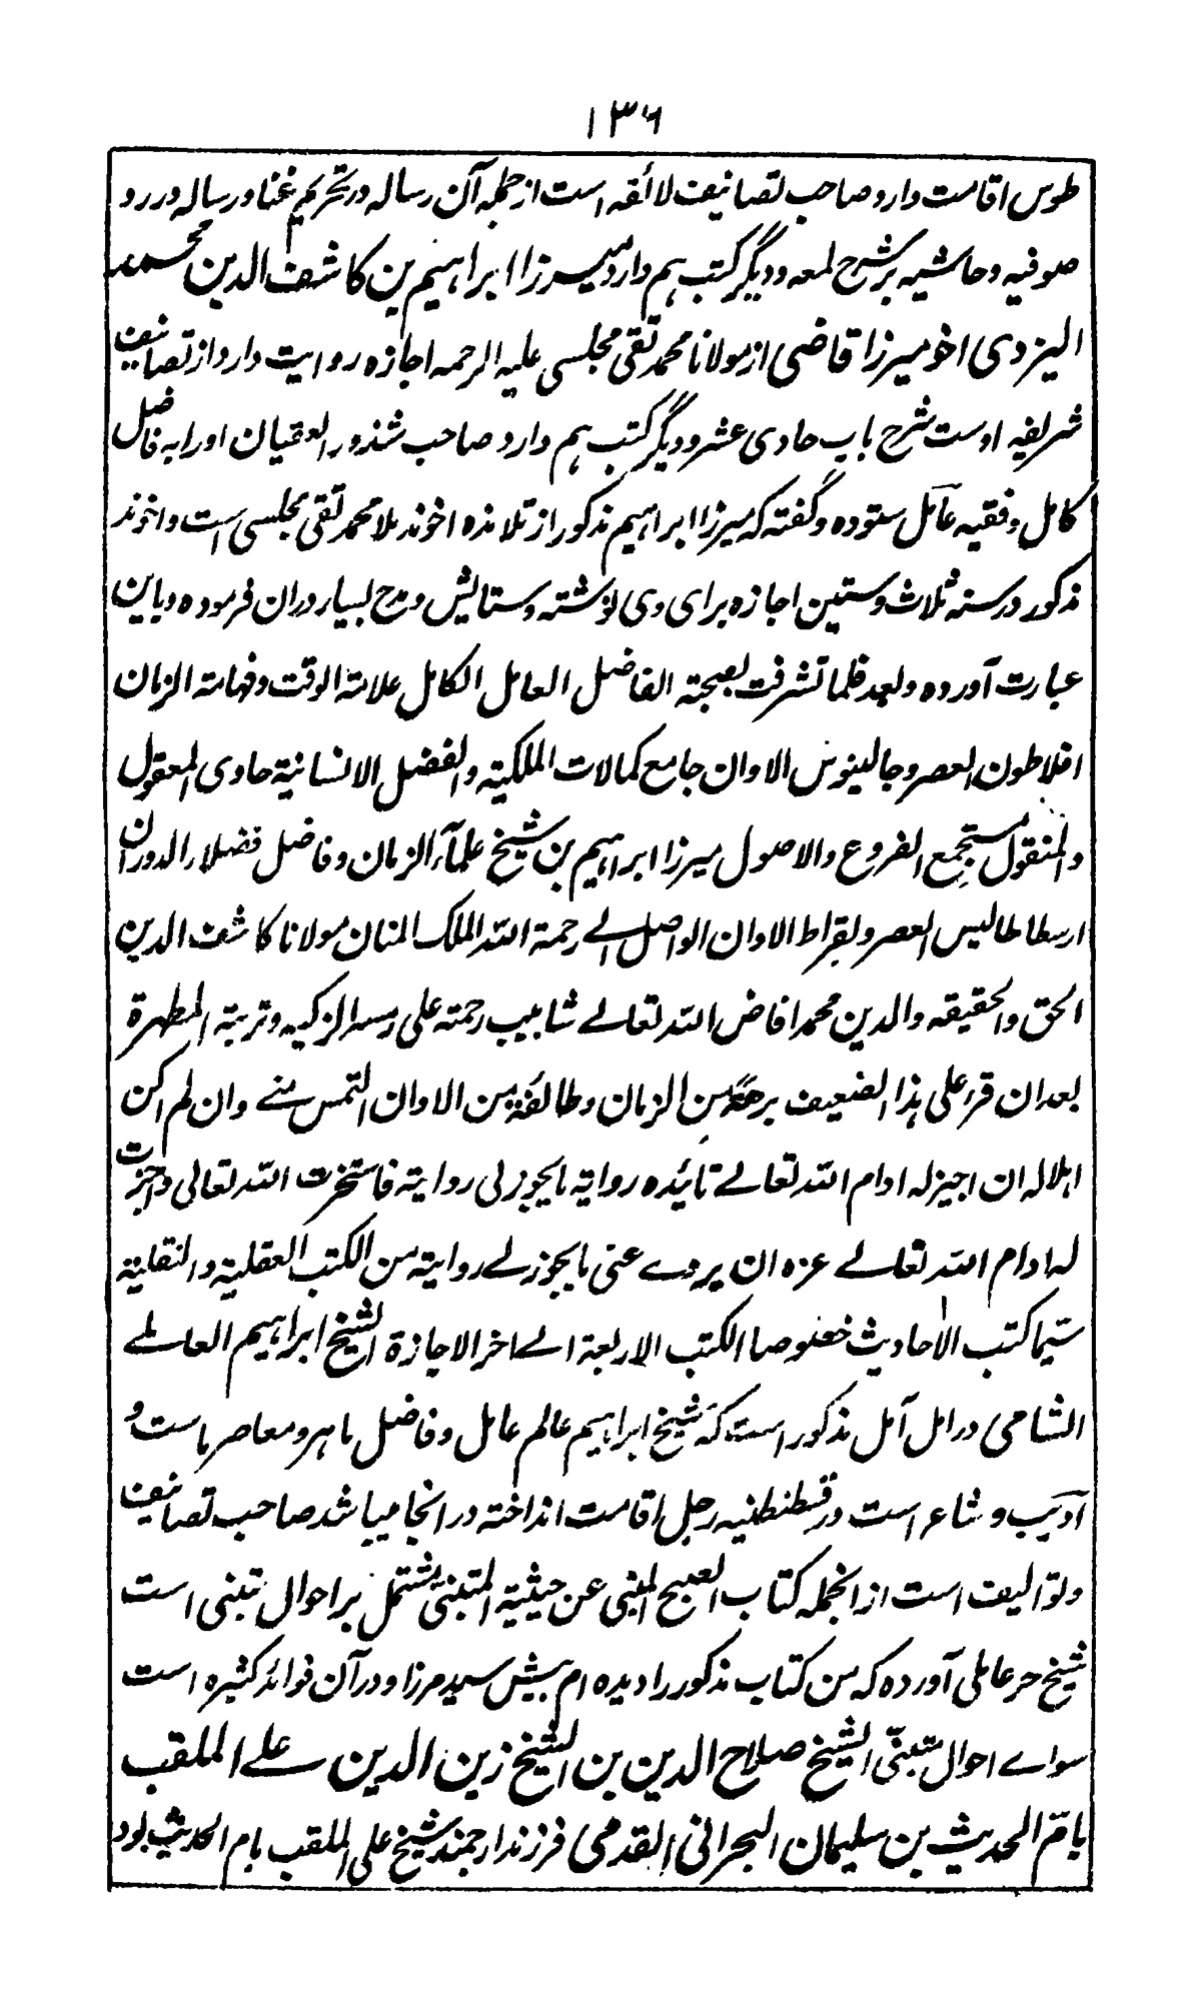 ۱۳۶
طوس اقامت دارد صاحب تصانیف لائقه است از جمله آن رساله در تحریم غنا و رساله در رد
صوفیه و حاشیه بر شرح لمعه و دیگر کتب هم دارد میرزا ابراهیم بن کاشف الدین محمد
الیزدی اخو میرزا قاضی از مولانا محمد تقی مجلسی علیه الرحمه اجازه روایت دارد از تصانیف
شریفه اوست شرح باب حادی عشر و دیگر کتب هم دارد صاحب شذور العقیان اورا به فاضل
کامل و فقیه عامل ستوده و گفته که میرزا ابراهیم مذکور از تلامذه اخوند ملا محمد تقی مجلسی است و اخوند
مذکور در سنه ثلاث و ستین اجازه برای وی نوشته و ستایش و مدح بسیار دران فرموده و باین
عبارت آورده و بعد فلما تشرفت بصحبته الفاضل العامل الکامل علامة الوقت و فهامة الزمان
افلاطون العصر و جالینوس الاوان جامع کمالات الملکیة والفضل الانسانیة حاوی المعقول
والمنقول مستجمع الفروع والاصول میرزا ابراهیم بن شیخ علمآء الزمان و فاضل فضلاء الدوران
ارسطاطالیس العصر و بقراط الاوان الواصل الے رحمة الله الملک المنان مولانا کاشف الدین
الحق والحقیقه والدین محمد افاض الله تعالے شابیب رحمته علی رمسه الزکیه و تربته المطهرة
بعد ان قرء علی هذا الضعیف برهة من الزمان و طائفة من الاوان التمس منے وان لم اکن
اهلا له ان اجیز له ادام الله تعالے تائیده روایة مایجوز لی روایة فاستخرت الله تعالی واجزت
له ادام الله تعالے عزه ان یروے عنی مایجوز لے روایته من الکتب العقلیة والنقلیة
سیما کتب الاحادیث خصوصا الکتب الاربعة الے اخر الاجازة الشیخ ابراهیم العاملے
الشامی در امل آمل مذکور است که شیخ ابراهیم عالم عامل و فاضل ماهر و معاصر ماست و
ادیب و شاعر است در قسطنطنیه رحل اقامت انداخته در انجا میباشد صاحب تصانیف
و توالیف است از انجمله کتاب الصبح المنبی عن حیثیة المتنبی مشتمل بر احوال متنبی است
شیخ حر عاملی آورده که من کتاب مذکور را دیده ام پیش سید مرزا و در آن فوائد کثیره است
سواے احوال متنبّی الشیخ صلاح الدین بن الشیخ زین الدین علے الملقب
بامّ الحدیث بن سلیمان البحرانی القدمی فرزند ارجمند شیخ علی الملقب بام الحدیث بود